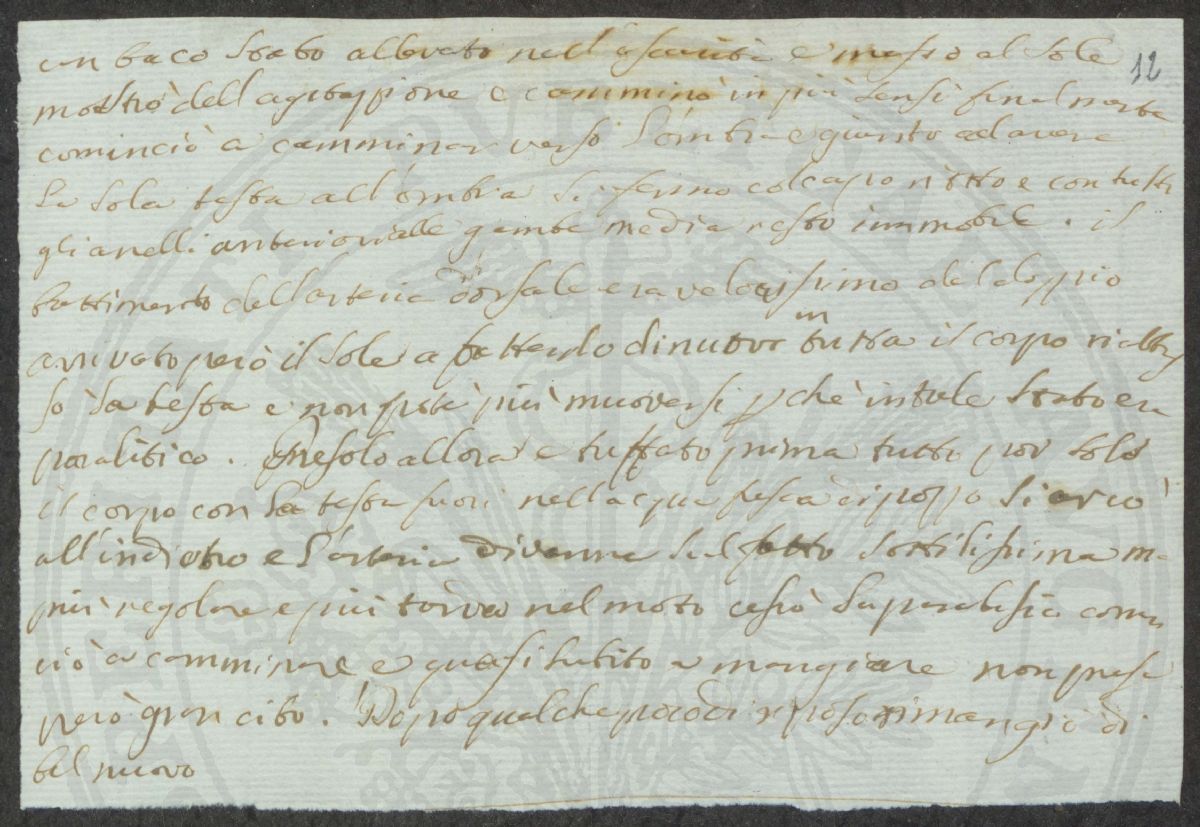 un baco stato allevato nell'oscurità e messo al sole 12
mostrò dell'agitazzione e camminò in più sensi finalmente
cominciò a camminar verso l'ombra e giunto ad avere
la sola testa all'ombra si fermò col capo ritto e con tutti
gli anelli anteriori alle gambe media restò immobile. il
battimento dell'arteria dorsale era velocissimo del doppio
arrivato però il sole a batterlo di nuovo in tutta il corpo
sò la testa e non potè più muoversi che in tale stato era
paralitico. Presolo allora e tuffato prima tutto poi solo
il corpo con la testa fuori nell'acqua fresca di pozzo si arcò
all'indietro e l'arteria divenne sul fatto sottilissima ma
più regolare e più tarda nel moto cessò la paralisia comin
ciò a camminare e quasi subito a mangiare non prese
però gran cibo. Dopo qualche poco di riposo rimangiò di
bel nuovo